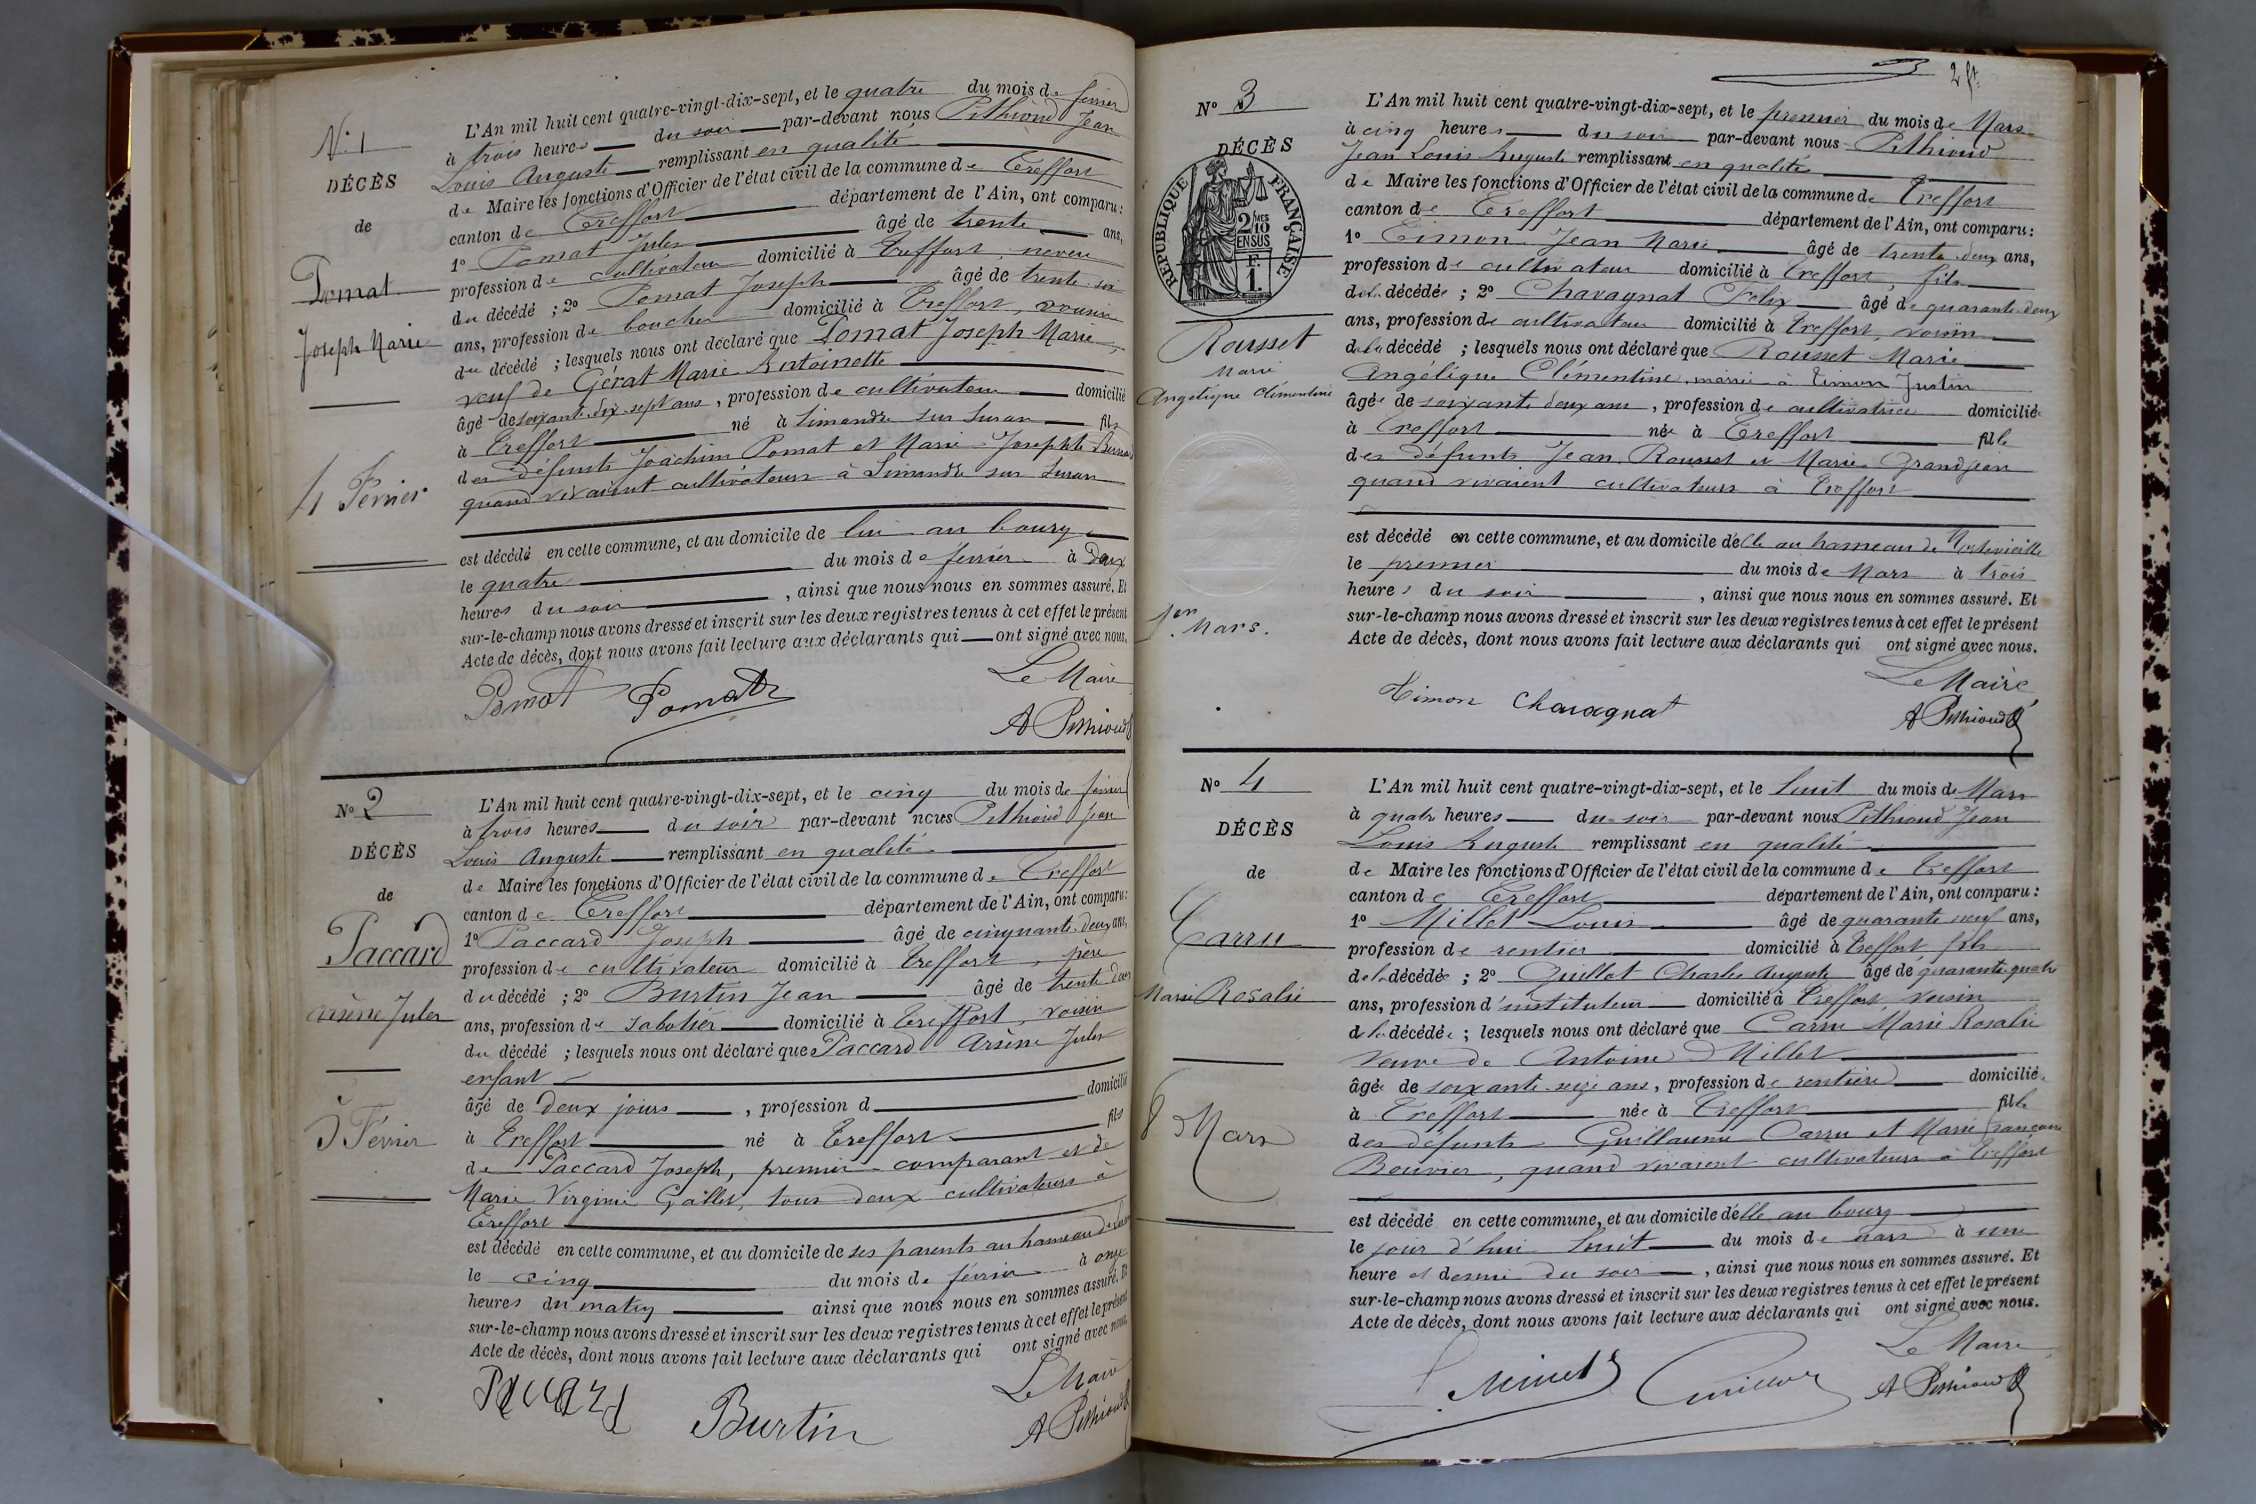 N° 1
DÉCÈS
de
Pomat
Joseph Marie
4 Février
L'An mil huit cent quatre-vingt-dix-sept, et le quatre du mois de février
à trois heures du soir par-devant nous Pithioud Jean
Louis Auguste remplissant en qualité
de Maire les fonctions d'Officier de l'état civil de la commune de Treffort
canton de Treffort département de l'Ain, ont comparu:
1° Pomat Jules âgé de trente ans,
profession de cultivateur domicilié à Treffort, neveu
du décédé ; 2° Pomat Joseph âgé de trente six
ans, profession de boucher domicilié à Treffort, cousin
du décédé ; lesquels nous ont déclaré que Pomat Joseph Marie,
veuf de Gérat Marie Antoinette
âgé de soixante dix sept ans, profession de cultivateur domicilié
à Treffort né à Simandre sur Suran fils
des défunts Joachim Pomat et Marie Josephte
quand vivaient cultivateurs à Simandre sur Suran
est décédé en cette commune, et au domicile de lui au bourg
le quatre du mois de février à deux
heures du soir, ainsi que nous nous en sommes assuré. Et
sur-le-champ nous avons dressé et inscrit sur les deux registres tenus à cet effet le présent
Acte de décès, dont nous avons fait lecture aux déclarants qui ont signé avec nous.
Le Maire
Pomat Pomat
A Pithioud
N° 2
DÉCÈS
de
Paccard
Arsène Jules
5 Février
L'An mil huit cent quatre-vingt-dix-sept, et le cinq du mois de février
à trois heures du soir par-devant nous Pithioud Jean
Louis Auguste remplissant en qualité
de Maire les fonctions d'Officier de l'état civil de la commune de Treffort
canton de Treffort département de l'Ain, ont comparu:
1° Paccard Joseph âgé de cinquante deux ans,
profession de cultivateur domicilié à Treffort, père
du décédé ; 2° Burtin Jean âgé de trente deux
ans, profession de sabotier domicilié à Treffort, voisin
du décédé ; lesquels nous ont déclaré que Paccard Arsène Jules
enfant
âgé de deux jours, profession d domicilié
à Treffort né à Treffort fils
de Paccard Joseph, premier comparant et de
Marie Virginie Gaillet, tous deux cultivateurs à
Treffort
est décédé en cette commune, et au domicile de ses parents au hameau de
le cinq du mois de février à onze
heures du matin ainsi que nous nous en sommes assuré. Et
sur-le-champ nous avons dressé et inscrit sur les deux registres tenus à cet effet le présent
Acte de décès, dont nous avons fait lecture aux déclarants qui ont signé avec nous.
Le Maire
Paccard Burtin
A Pithioud
N° 3
DÉCÈS
RÉPUBLIQUE FRANÇAISE
2/10 EN SUS
F.
1.
Rousset
Marie
Angélique Clémentine
1er Mars.
L'An mil huit cent quatre-vingt-dix-sept, et le premier du mois de Mars
à cinq heures du soir par-devant nous Pithioud
Jean Louis Auguste remplissant en qualité
de Maire les fonctions d'Officier de l'état civil de la commune de Treffort
canton de Treffort département de l'Ain, ont comparu:
1° Timon Jean Marie âgé de trente deux ans,
profession de cultivateur domicilié à Treffort, fils
de la décédée ; 2° Chavagnat Félix âgé de quarante deux
ans, profession de cultivateur domicilié à Treffort, voisin
de la décédé ; lesquels nous ont déclaré que Rousset Marie
Angélique Clémentine, mariée à Timon Justin
âgée de soixante deux ans, profession de cultivatrice domiciliée
à Treffort née à Treffort fille
des défunts Jean Rousset et Marie Grandjean
quand vivaient cultivateurs à Treffort
est décédé en cette commune, et au domicile d'elle au hameau de
le premier du mois de Mars à trois
heures du soir, ainsi que nous nous en sommes assuré. Et
sur-le-champ nous avons dressé et inscrit sur les deux registres tenus à cet effet le présent
Acte de décès, dont nous avons fait lecture aux déclarants qui ont signé avec nous.
Le Maire
Timon Chavagnat
A Pithioud
N° 4
DÉCÈS
de
Carru
Marie Rosalie
8 Mars
L'An mil huit cent quatre-vingt-dix-sept, et le huit du mois de Mars
à quatre heures du soir par-devant nous Pithioud Jean
Louis Auguste remplissant en qualité
de Maire les fonctions d'Officier de l'état civil de la commune de Treffort
canton de Treffort département de l'Ain, ont comparu:
1° Millet Louis âgé de quarante neuf ans,
profession de rentier domicilié à Treffort fils
de la décédée ; 2° Guillot Charles Auguste âgé de quarante quatre
ans, profession d'instituteur domicilié à Treffort, voisin
de la décédée ; lesquels nous ont déclaré que Carru Marie Rosalie
veuve de Antoine Millet
âgée de soixante seize ans, profession de rentière domiciliée
à Treffort née à Treffort fille
des défunts Guillaume Carru et Marie Françoise
Bouvier, quand vivaient cultivateurs à Treffort
est décédé en cette commune, et au domicile d'elle au bourg
le jour d'hui huit du mois de mars à une
heure et demie du soir, ainsi que nous nous en sommes assuré. Et
sur-le-champ nous avons dressé et inscrit sur les deux registres tenus à cet effet le présent
Acte de décès, dont nous avons fait lecture aux déclarants qui ont signé avec nous.
Le Maire
L. Millet Guillot
A Pithioud